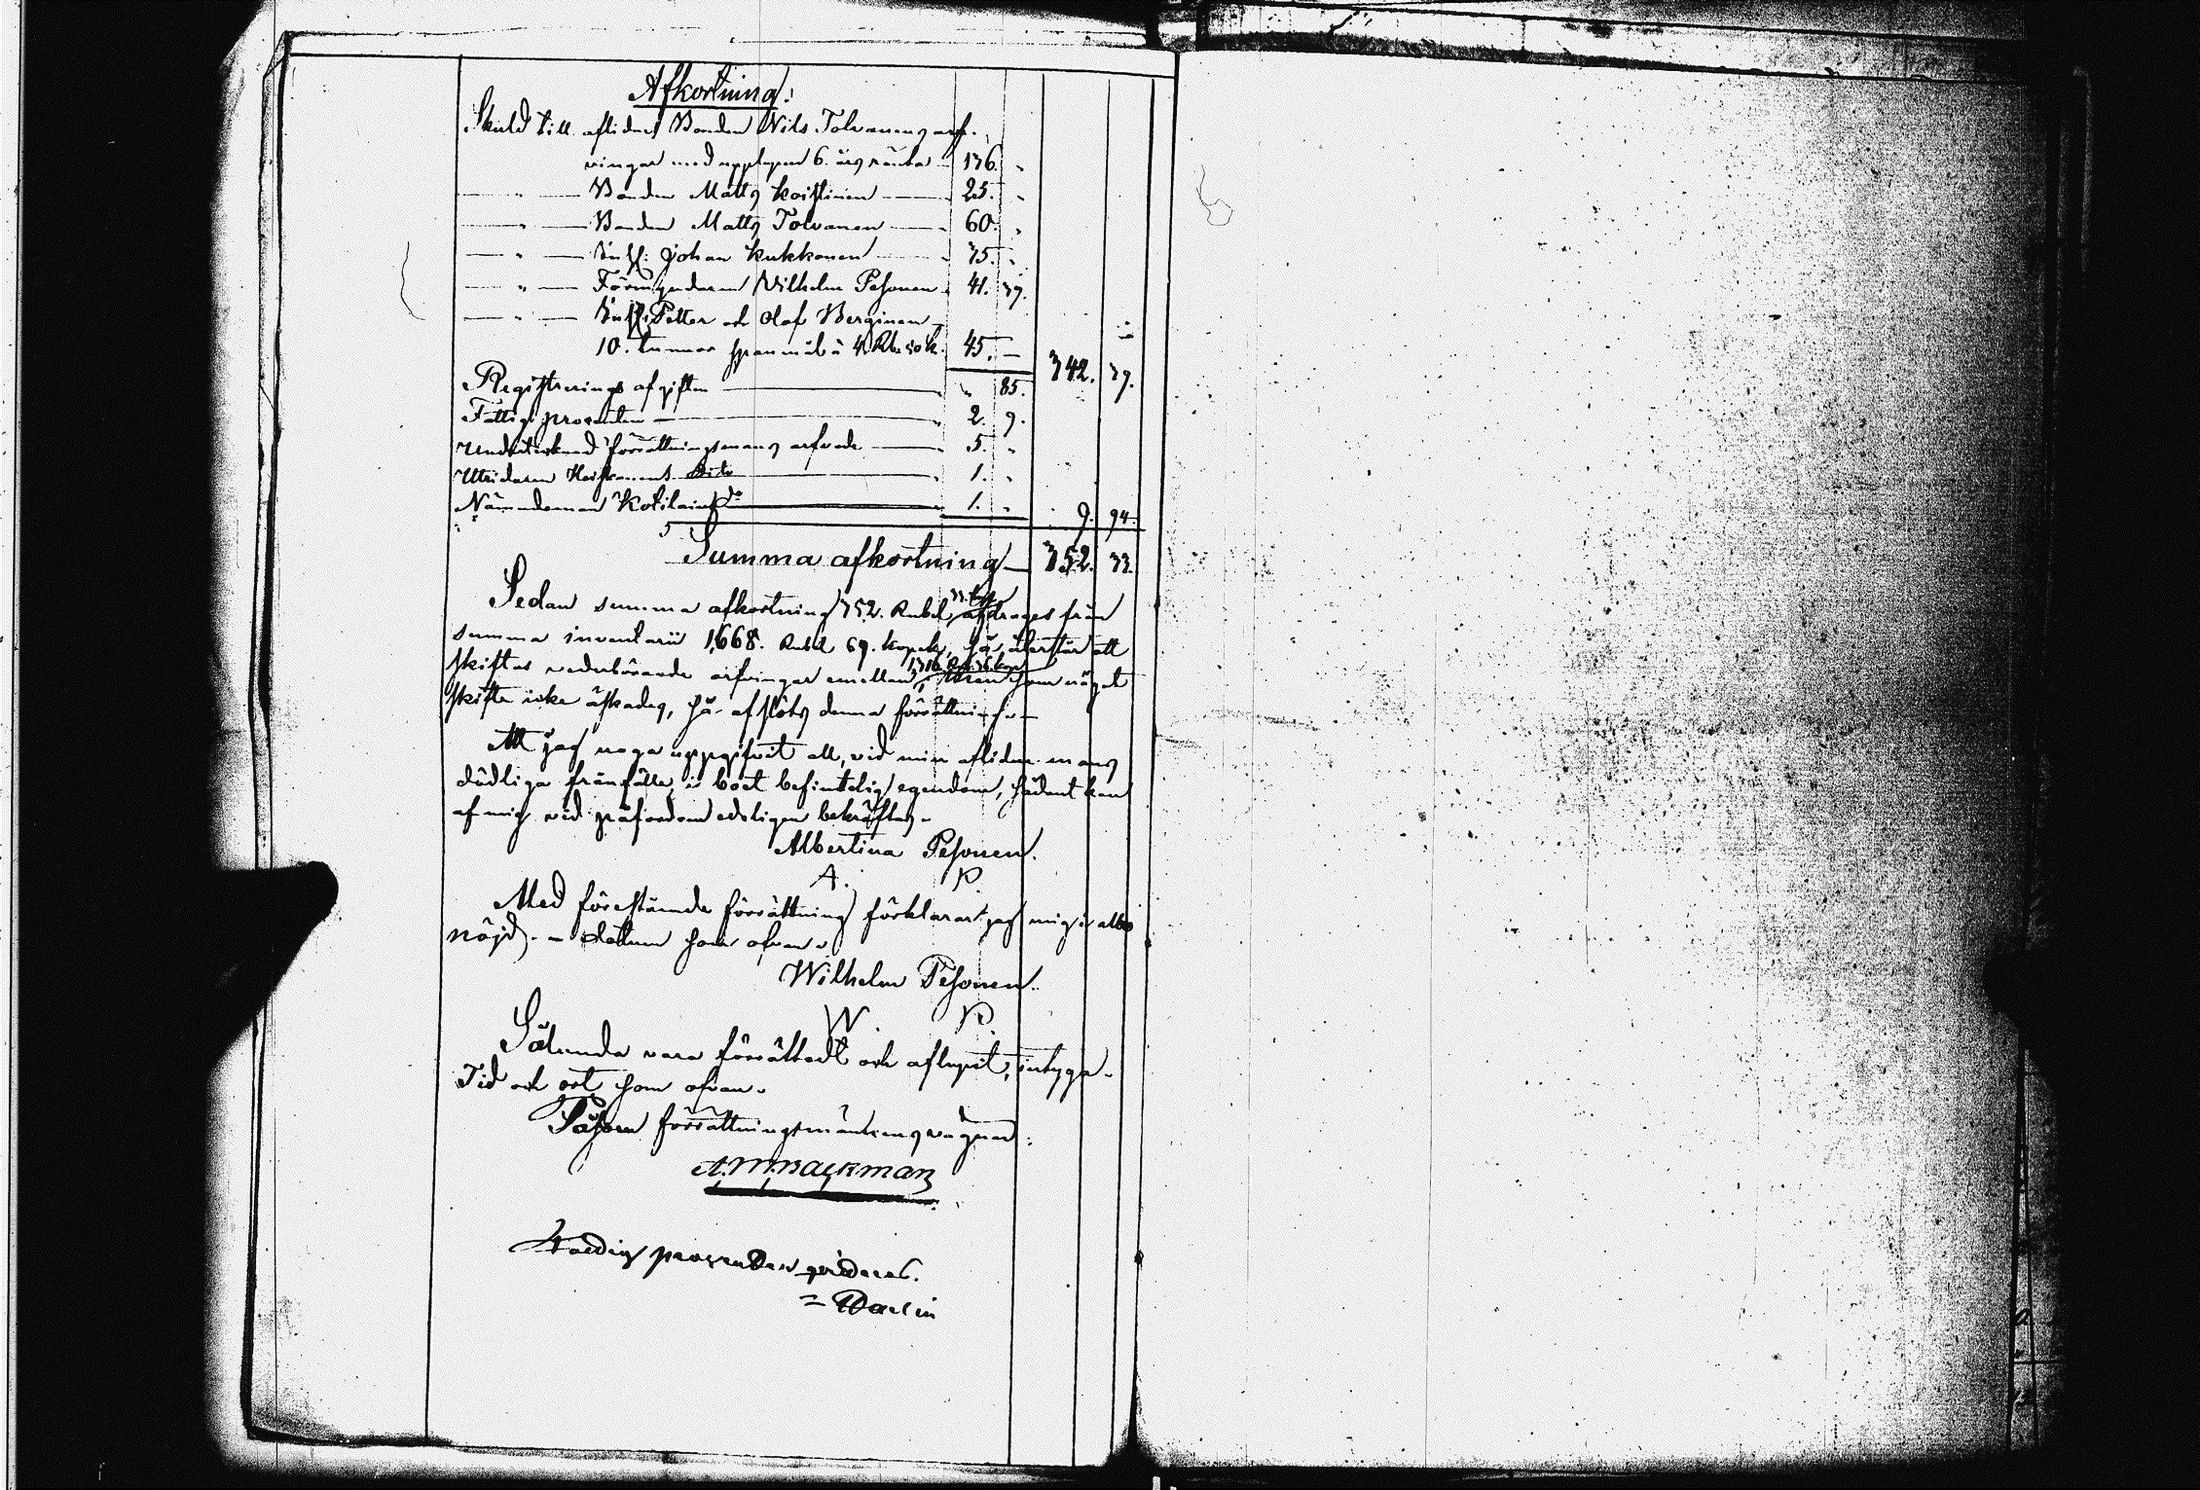 Afkortning:
Skuld till aflidne Bonden Nils Tolvanens arf-
vingar med upplupen 6. års ränta 136. "
— " — Bonden Matts Koistinen 25. "
— " — Bonden Matts Tolvanen 60. "
— " — Inh: Johan Kukkonen 35. "
— " — Förmyndaren Wilhelm Pesonen 41. 39.
— " — Inh: Petter och Olof Berginen
10. tunnor spanmål à 4 Rbl 50 k. 45. — 342. 39.
Registrerings afgiften " 85.
Fattigprocenten 2. 9.
Undertecknad förrättningsmans arfvode 5. "
Utridaren dito 1. "
Nämndeman Kotilains do 1. " 9. 94.
Summa afkortning — 352. 33.
Sedan summa afkortning 352. Rubel 33. kop. afdrages från
summa inventarii 1,668. Rubel 69. kopek, så återstår att
skiftas vederbörande arfvingar emellan 1,316 Rub. 36 kop. Men som något
skifte icke äskades, så afslöts denna förrättning.
Att jag noga uppgifvit all, vid min aflidne mans
dödliga frånfälle, i boet befintelig egendom, sådant kan
af mig vid påfordran edeligen bekräftas.
Albertina Pesonen.
A. P.
Med förestående förrättning förklarar jag mig i allo
nöjd. — Datum som ofvan.
Wilhelm Pesonen.
W. P.
Sålunda vara förrättadt och aflupit, intyga.
Tid och ort som ofvan.
På förrättningsmännens vägnar:
A. W. Backman
Fattig procenten qvitteras.